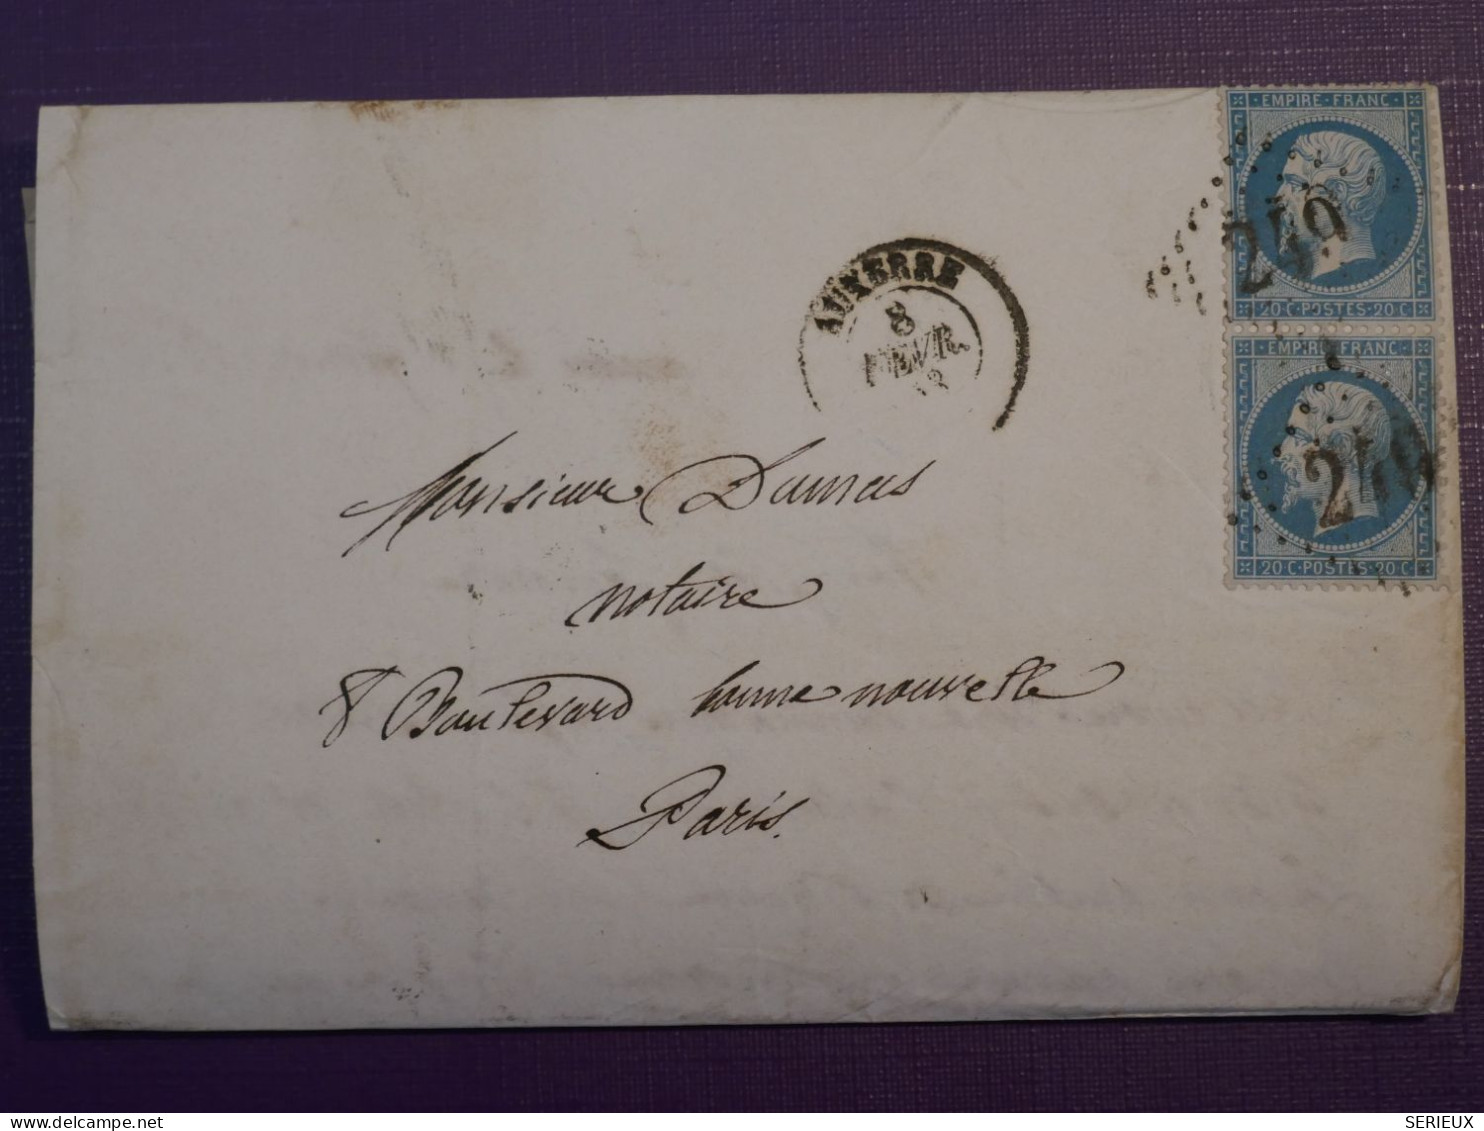 EMPIRE·FRANC
249
20 C·POSTES·20 C
EMPIRE·FRANC
249
20 C·POSTES·20 C
AUXERRE
8
FEVR.
Monsieur Dumas
notaire
8 Boulevard bonne nouvelle
Paris.
delcampe.net
SERIEUX